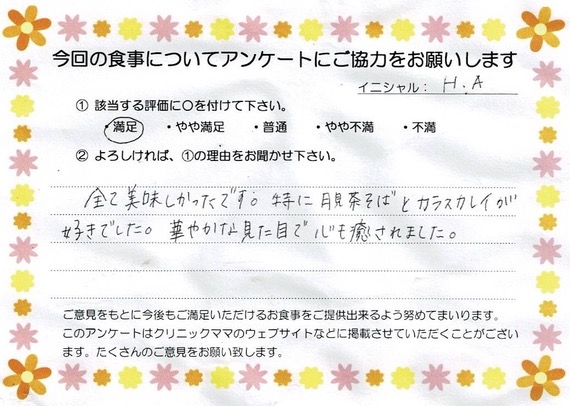 今回の食事についてアンケートにご協力をお願いします
イニシャル： H.A
① 該当する評価に○を付けて下さい。
・満足 ・やや満足 ・普通 ・やや不満 ・不満
② よろしければ、①の理由をお聞かせ下さい。
全て美味しかったです。特に月見茶そばとカラスカレイが
好きでした。華やかな見た目で心も癒されました。
ご意見をもとに今後もご満足いただけるお食事をご提供出来るよう努めてまいります。
このアンケートはクリニックママのウェブサイトなどに掲載させていただくことがござい
ます。たくさんのご意見をお願い致します。